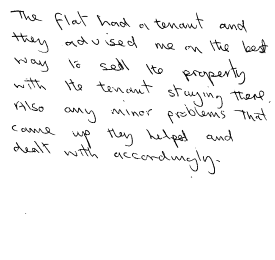 The flat had a tenant and
they advised me on the best
way to sell the property
with the tenant staying there.
Also any minor problems that
came up they helped and
dealt with accordingly.